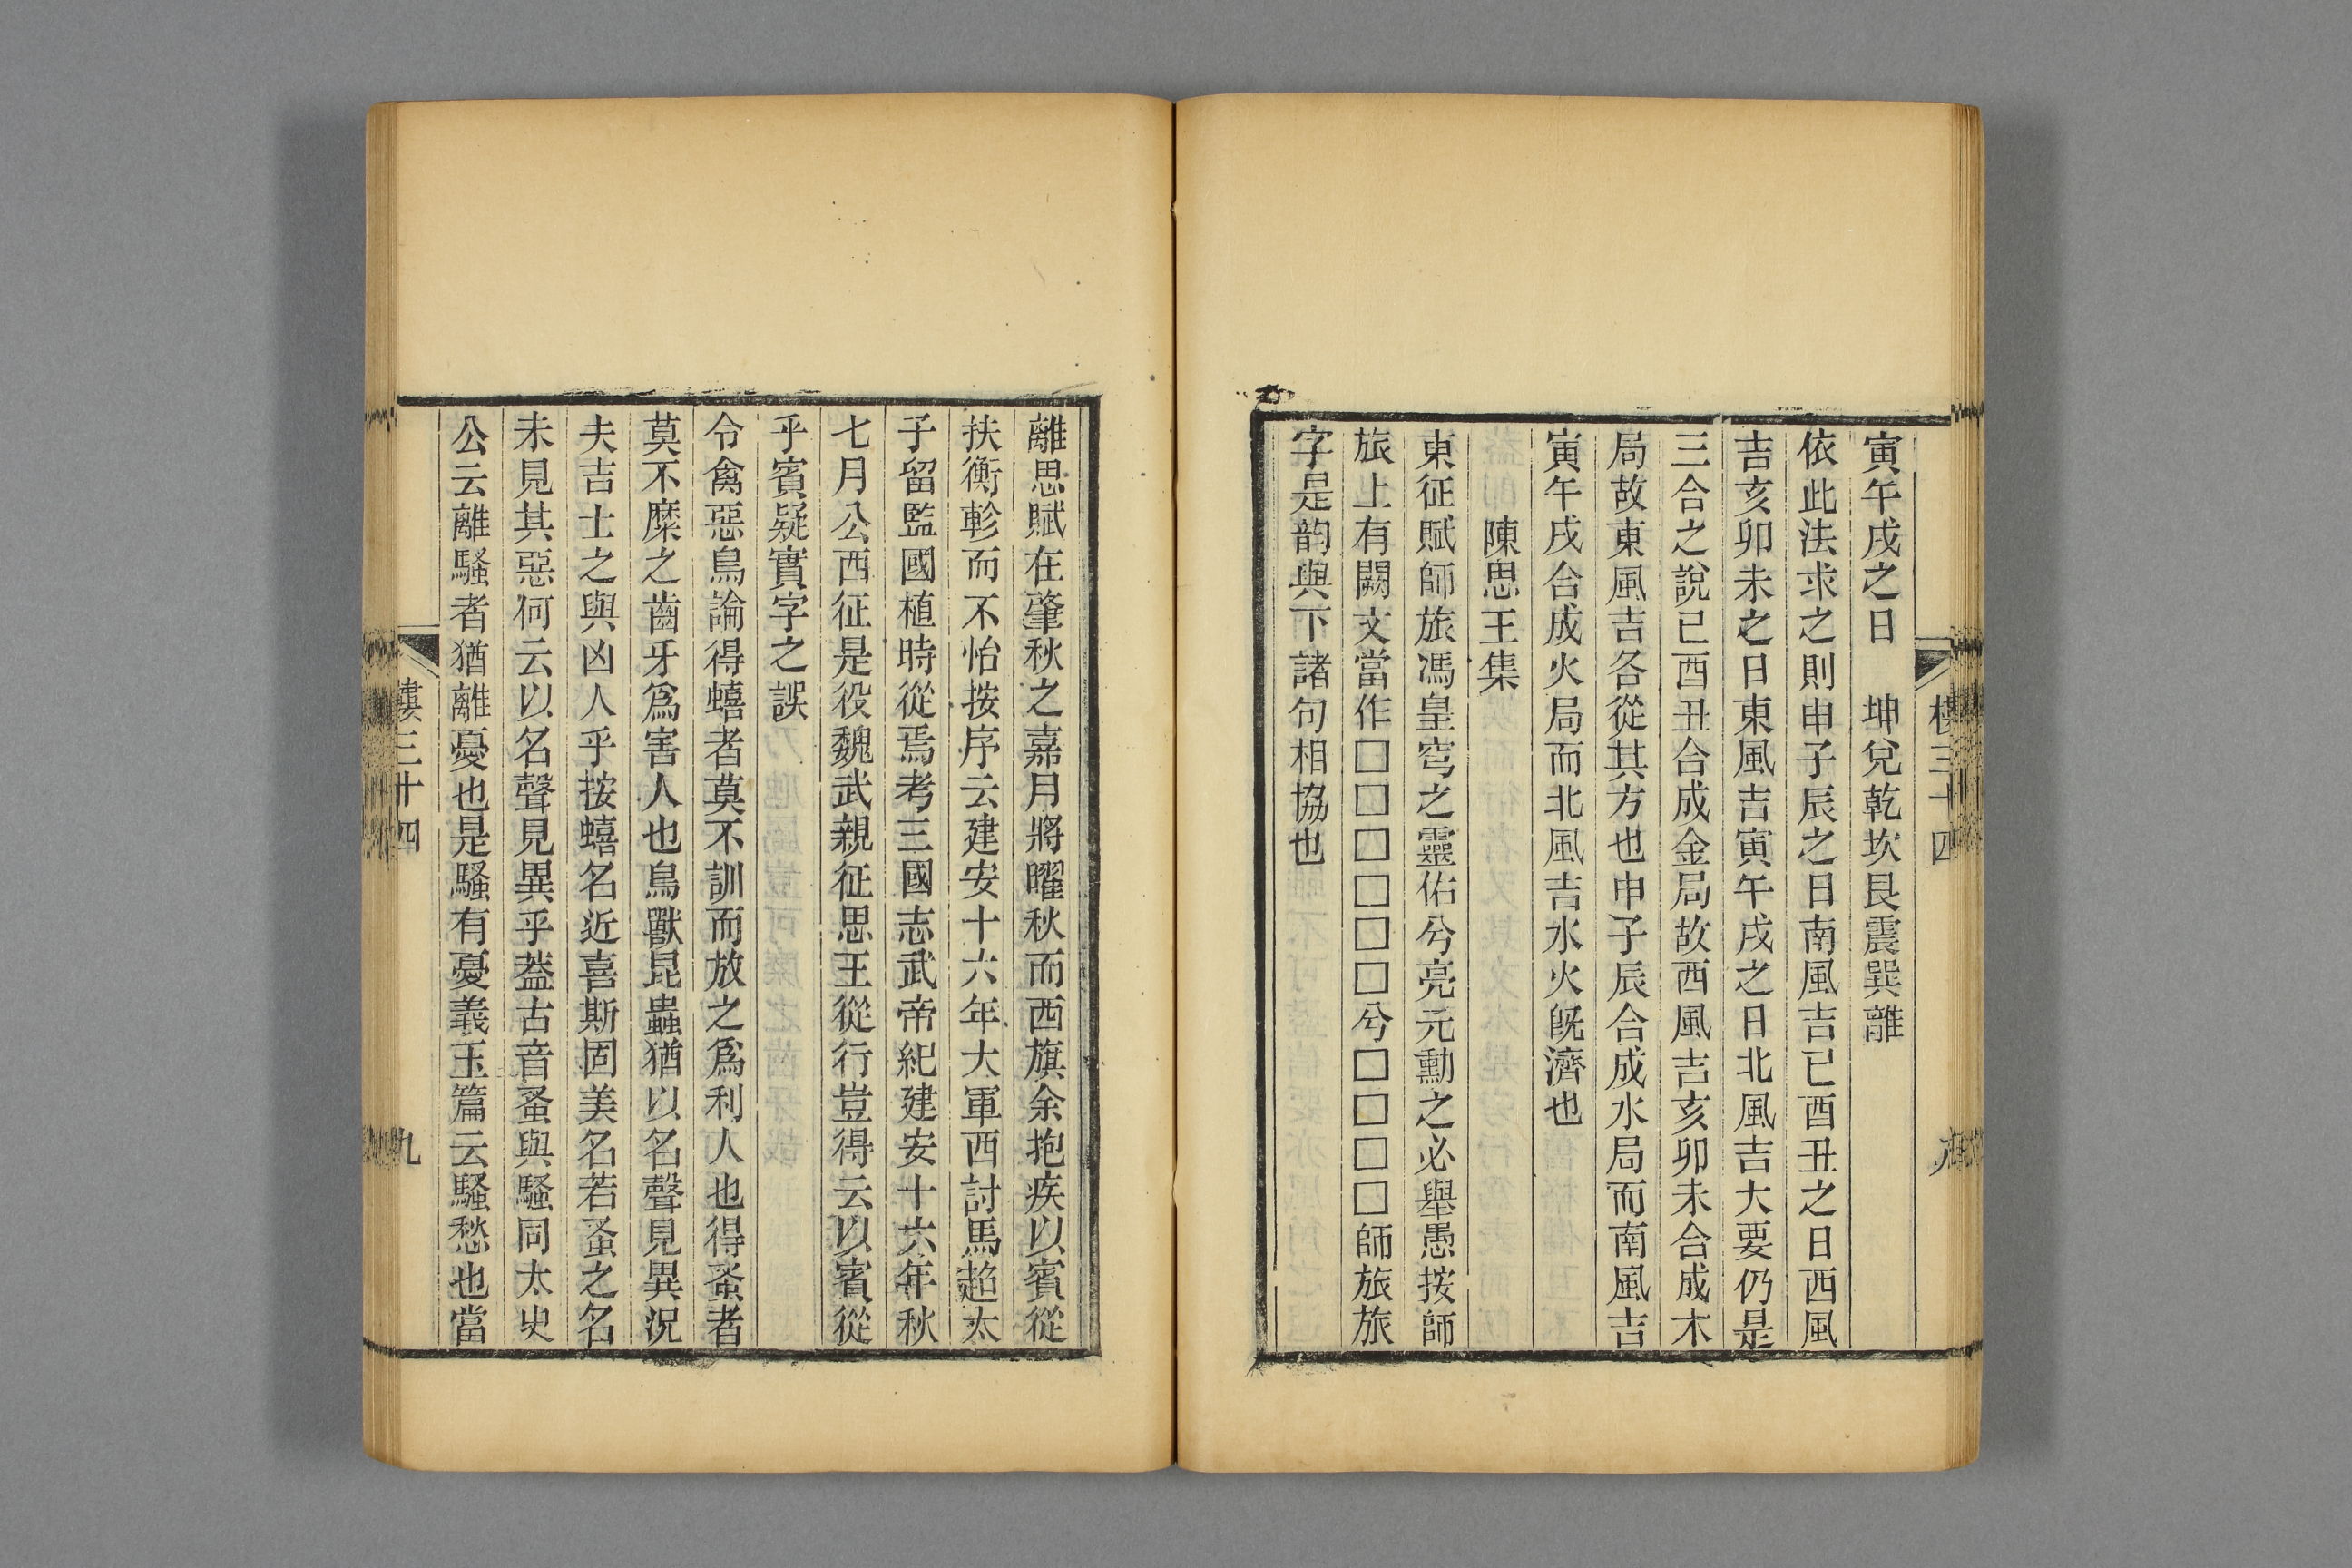 寅午戌之日　坤兌乾坎艮震巽離
依此法求之則申子辰之日南風吉巳酉丑之日西風
吉亥卯未之日東風吉寅午戌之日北風吉大要仍是
三合之說巳酉丑合成金局故西風吉亥卯未合成木
局故東風吉各從其方也申子辰合成水局而南風吉
寅午戌合成火局而北風吉水火旣濟也
陳思王集
東征賦師旅馮皇穹之靈佑兮亮元勳之必舉愚按師
旅上有闕文當作□□□□□□兮□□□□師旅旅
字是韵與下諸句相協也
離思賦在肇秋之嘉月將曜秋而西旗余抱疾以賓從
扶衡軫而不怡按序云建安十六年大軍西討馬超太
子留監國植時從焉考三國志武帝紀建安十六年秋
七月公西征是役魏武親征思王從行豈得云以賓從
乎賓疑實字之誤
令禽惡鳥論得蟢者莫不訓而放之爲利人也得蚤者
莫不糜之齒牙爲害人也鳥獸昆蟲猶以名聲見異況
夫吉士之與凶人乎按蟢名近喜斯固美名若蚤之名
未見其惡何云以名聲見異乎葢古音蚤與騷同太史
公云離騷者猶離憂也是騷有憂義玉篇云騷愁也當
樓三十四
九